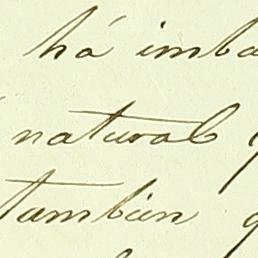 há imba
natural
tambien